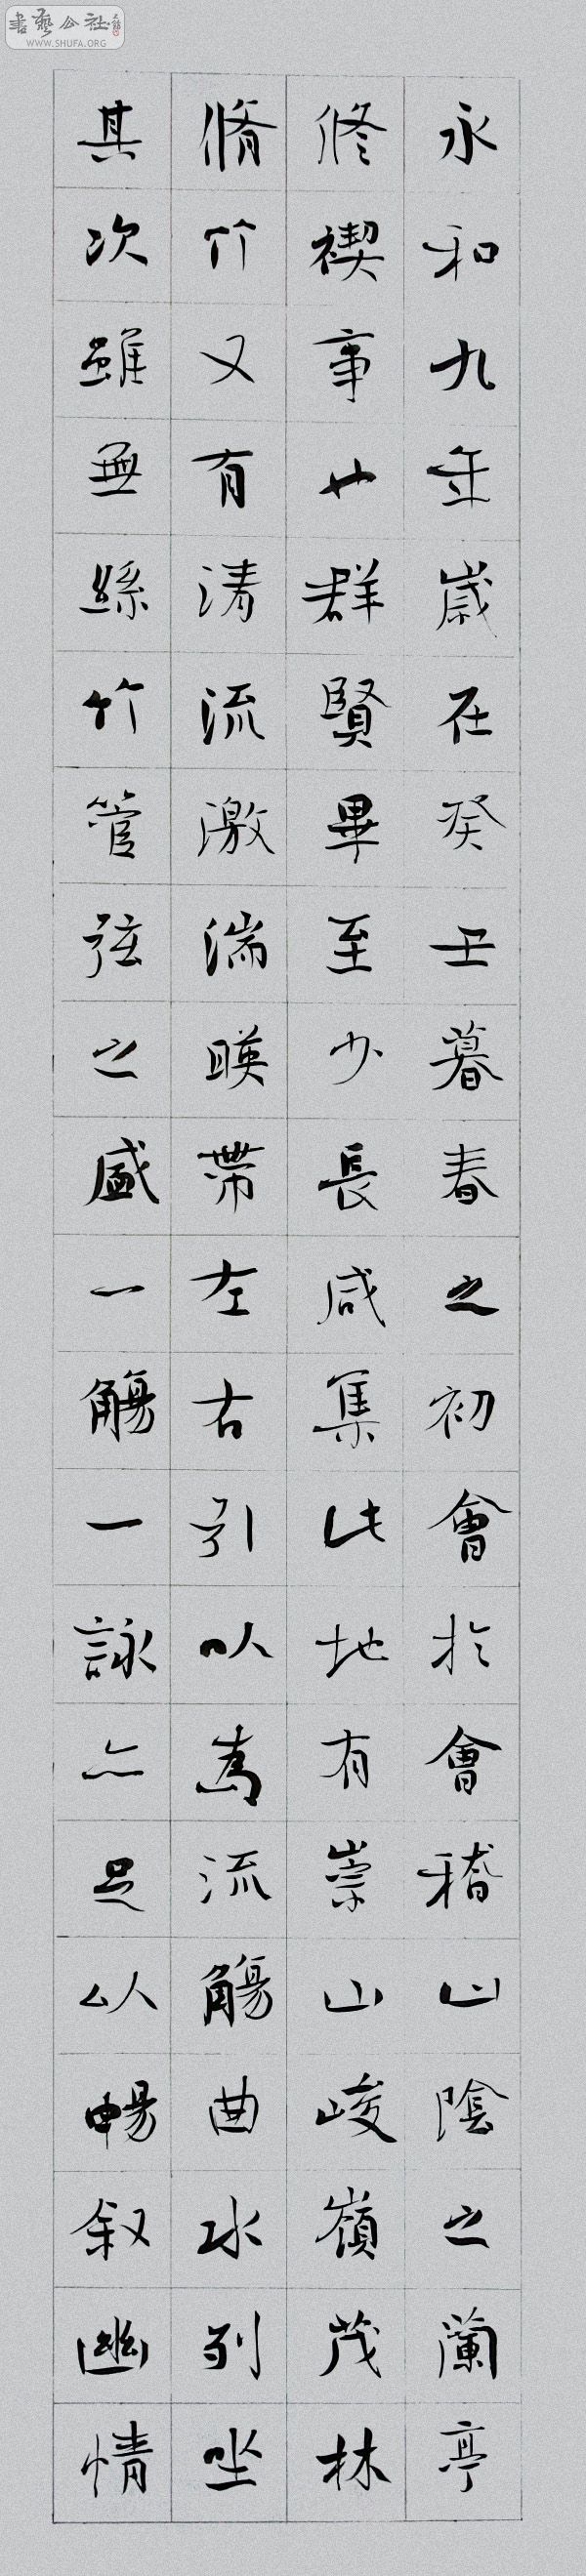 書藝公社
WWW.SHUFA.ORG
永和九年歲在癸丑暮春之初會於會稽山陰之蘭亭
修禊事也群賢畢至少長咸集此地有崇山峻嶺茂林
脩竹又有清流激湍暎帶左右引以為流觴曲水列坐
其次雖無絲竹管弦之盛一觴一詠亦足以暢叙幽情